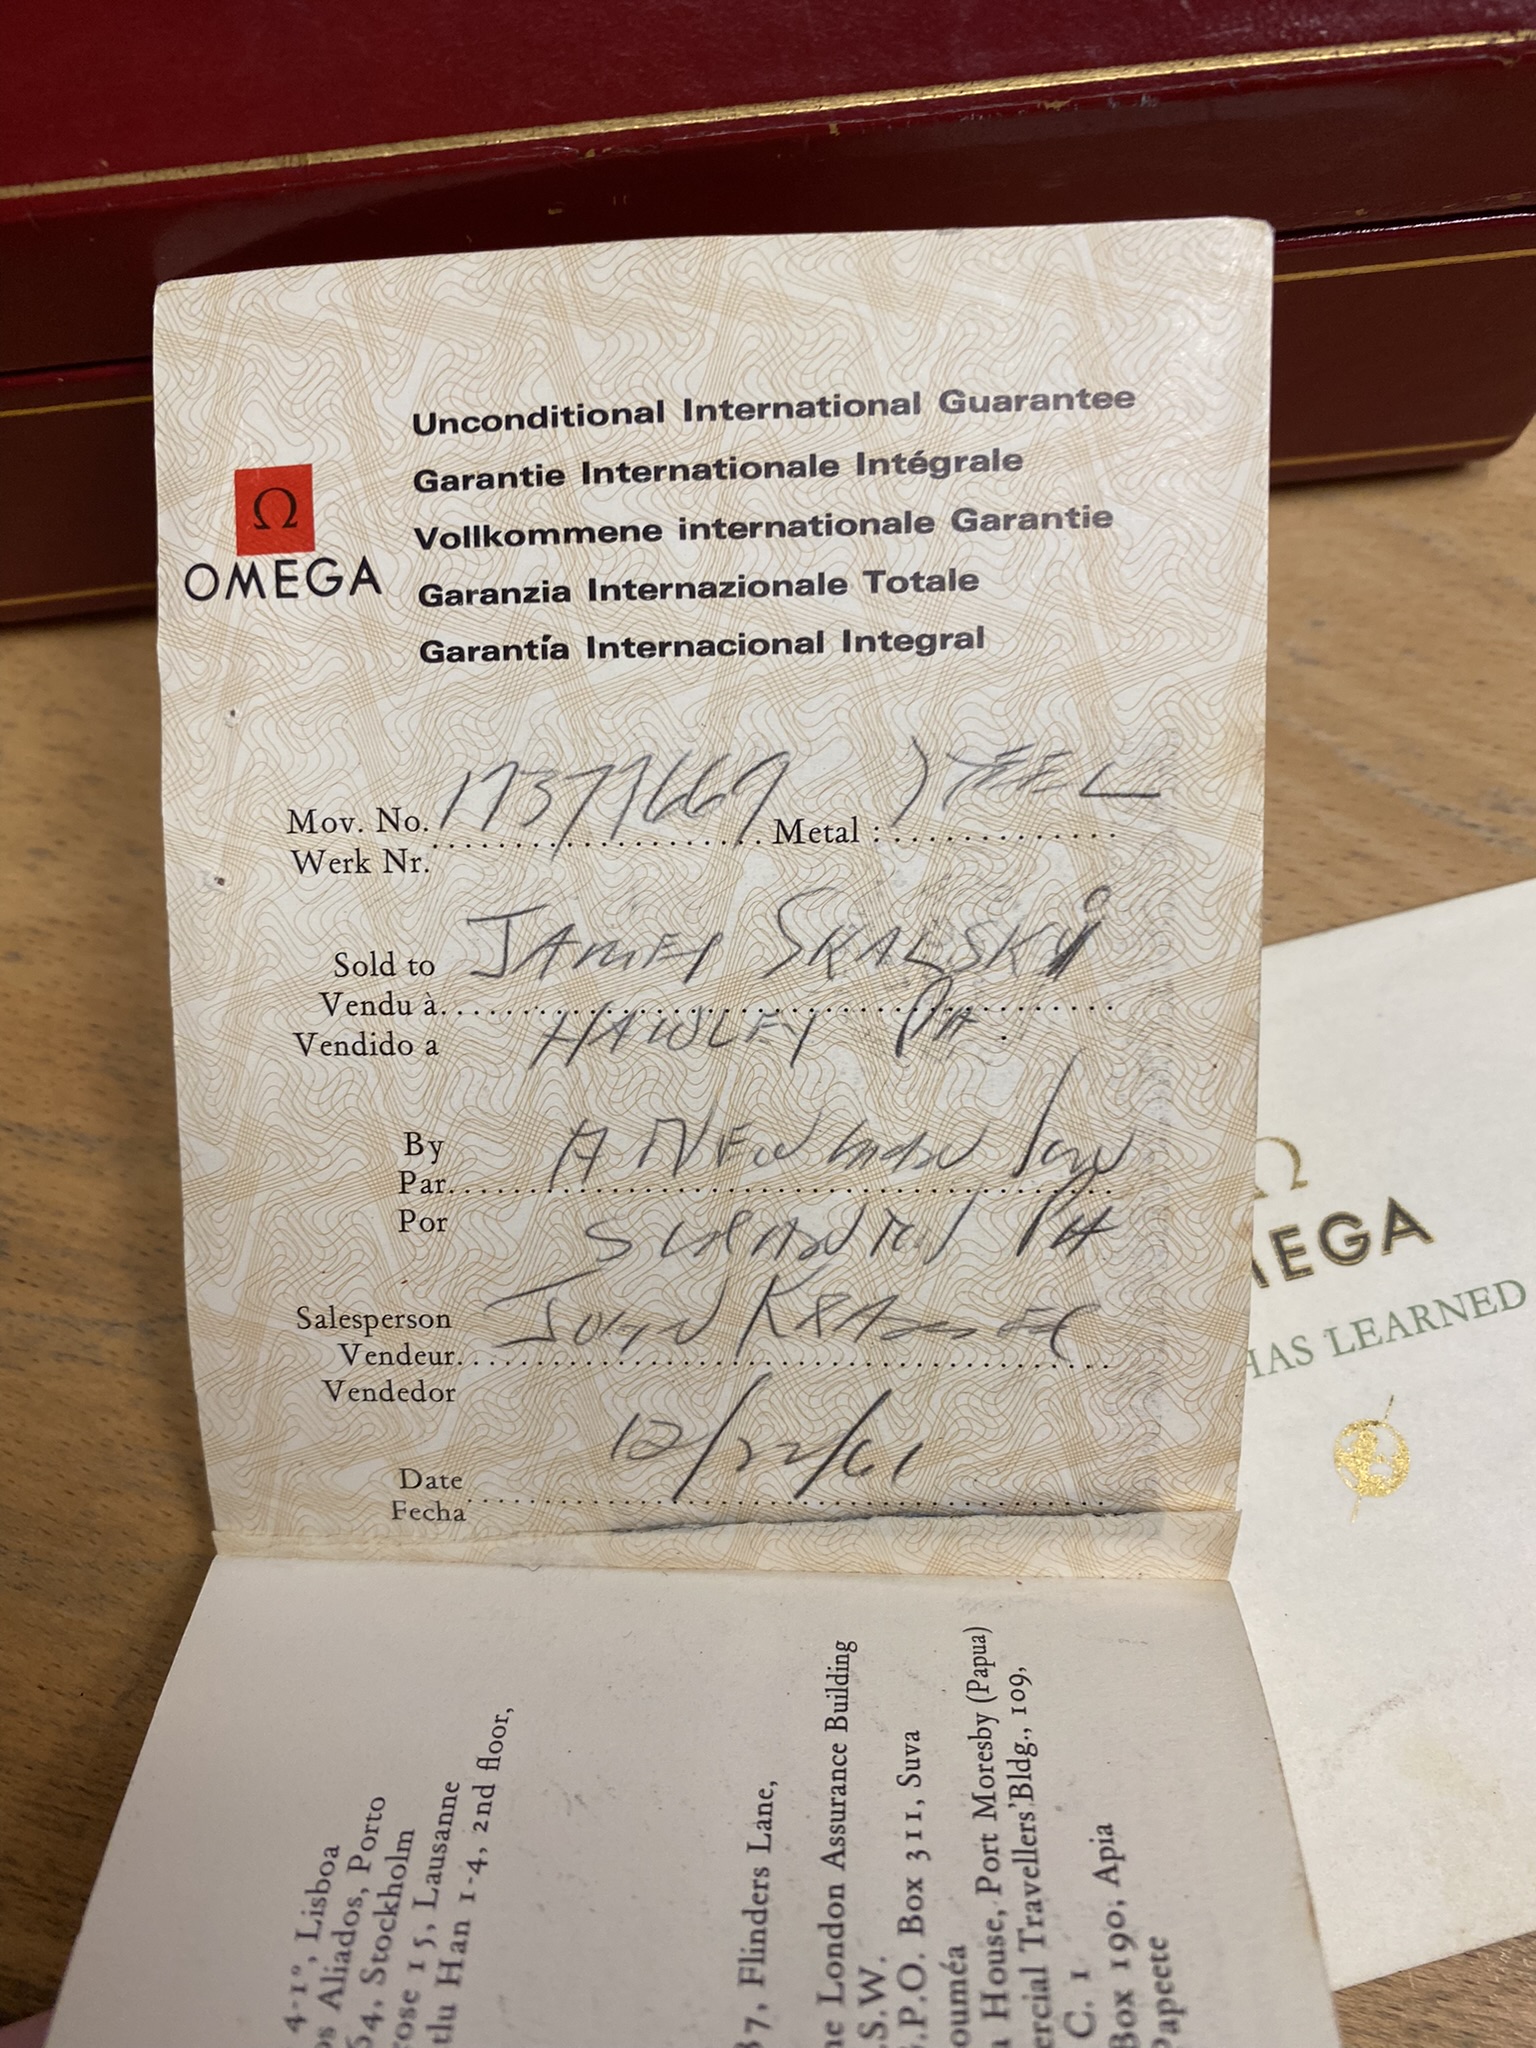 Unconditional International Guarantee
Garantie Internationale Intégrale
Vollkommene internationale Garantie
Garanzia Internazionale Totale
Garantía Internacional Integral
Ω
OMEGA
Mov. No. 17371667 Metal : STEEL
Werk Nr.
Sold to JAMES SKALSKI
Vendu à
Vendido a HAWLEY PA.
By A NEWMAN
Par
Por SCRANTON PA
Salesperson JOHN KRAMER
Vendeur
Vendedor
Date 12/22/61
Fecha
4-1º, Lisboa
os Aliados, Porto
64, Stockholm
rose 15, Lausanne
tlu Han 1-4, 2nd floor,
37, Flinders Lane,
ne London Assurance Building
.S.W.
.P.O. Box 311, Suva
ouméa
a House, Port Moresby (Papua)
ercial Travellers'Bldg., 109,
C. 1
Box 190, Apia
Papeete
Ω
MEGA
HAS LEARNED